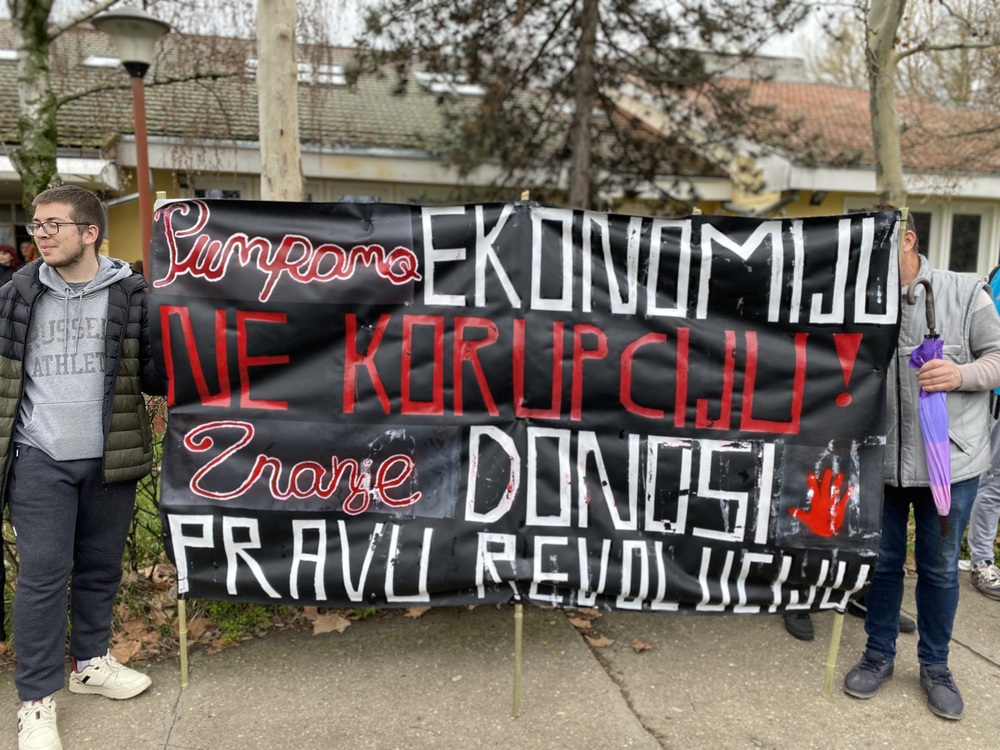 Pumpamo EKONOMIJU
NE KORUPCIJU!
Znanje DONOSI
PRAVU REVOLUCIJU
RUSSEL
ATHLET